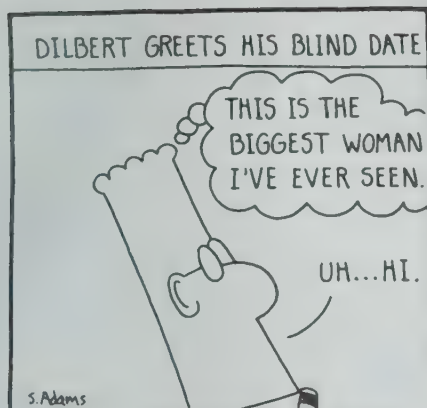 DILBERT GREETS HIS BLIND DATE
THIS IS THE
BIGGEST WOMAN
I'VE EVER SEEN.
UH...HI.
S.Adams